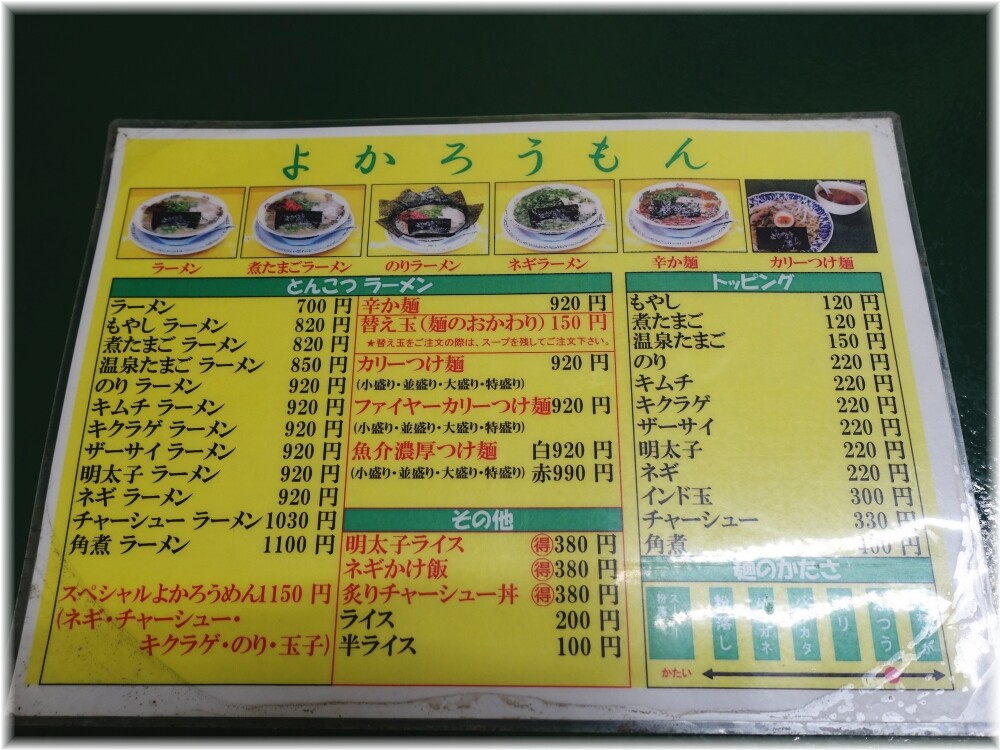 よかろうもん
ラーメン
煮たまごラーメン
のりラーメン
ネギラーメン
辛か麺
カリーつけ麺
とんこつ ラーメン
ラーメン 700 円
もやし ラーメン 820 円
煮たまご ラーメン 820 円
温泉たまご ラーメン 850 円
のり ラーメン 920 円
キムチ ラーメン 920 円
キクラゲ ラーメン 920 円
ザーサイ ラーメン 920 円
明太子 ラーメン 920 円
ネギ ラーメン 920 円
チャーシュー ラーメン 1030 円
角煮 ラーメン 1100 円
スペシャルよかろうめん1150 円
(ネギ・チャーシュー・
キクラゲ・のり・玉子)
辛か麺 920 円
替え玉(麺のおかわり) 150 円
★替え玉をご注文の際は、スープを残してご注文下さい。
カリーつけ麺 920 円
(小盛り・並盛り・大盛り・特盛り)
ファイヤーカリーつけ麺920 円
(小盛り・並盛り・大盛り・特盛り)
魚介濃厚つけ麺 白920 円
(小盛り・並盛り・大盛り・特盛り) 赤990 円
その他
明太子ライス 得380 円
ネギかけ飯 得380 円
炙りチャーシュー丼 得380 円
ライス 200 円
半ライス 100 円
トッピング
もやし 120 円
煮たまご 120 円
温泉たまご 150 円
のり 220 円
キムチ 220 円
キクラゲ 220 円
ザーサイ 220 円
明太子 220 円
ネギ 220 円
インド玉 300 円
チャーシュー 330 円
角煮 円
麺のかたさ
粉落し
かたい